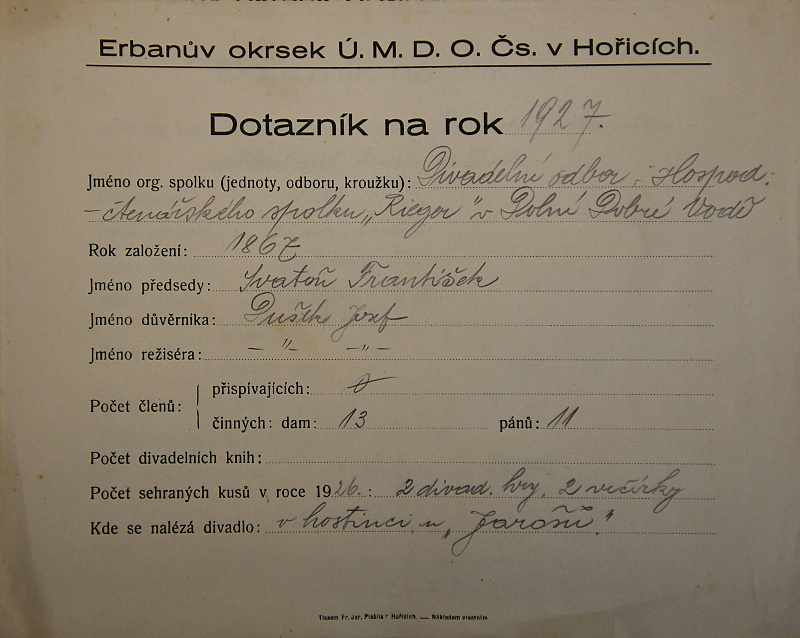 Erbanův okrsek Ú. M. D. O. Čs. v Hořicích.
Dotazník na rok 1927.
Jméno org. spolku (jednoty, odboru, kroužku): Divadelní odbor - Hospod.
-čtenářského spolku „Rieger" v Dolní Dobré Vodě
Rok založení: 1867
Jméno předsedy: Svatoň František
Jméno důvěrníka: Dušek Josef
Jméno režiséra: — " — — " —
Počet členů: přispívajících:
činných: dam: 13 pánů: 11
Počet divadelních knih:
Počet sehraných kusů v roce 1926.: 2 divad. hry, 2 večírky
Kde se nalézá divadlo: v hostinci u „Jarošů."
Tiskem Fr. Jar. Plašila v Hořicích. — Nákladem vlastním